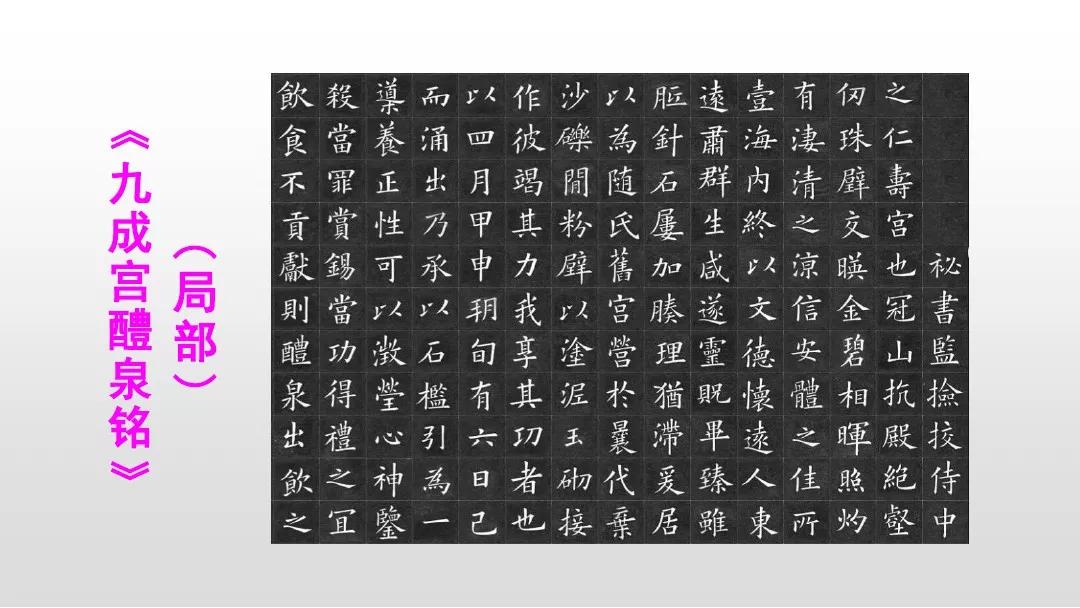 《九成宫醴泉铭》
（局部）
祕書監撿挍侍中
之仁壽宫也冠山抗殿絕壑
仞珠璧交暎金碧相暉照灼
有淒清之涼信安體之佳所
壹海內終以文德懷遠人東
遠肅群生咸遂靈貺畢臻雖
胝針石屢加腠理猶滯爰居
以為随氏舊宫營於曩代棄
沙礫閒粉壁以塗泥玉砌接
作彼竭其力我享其功者也
以四月甲申朔旬有六日己
而涌出乃承以石檻引為一
導養正性可以澂瑩心神鑒
殺當罪賞錫當功得禮之宜
飲食不貢獻則醴泉出飲之